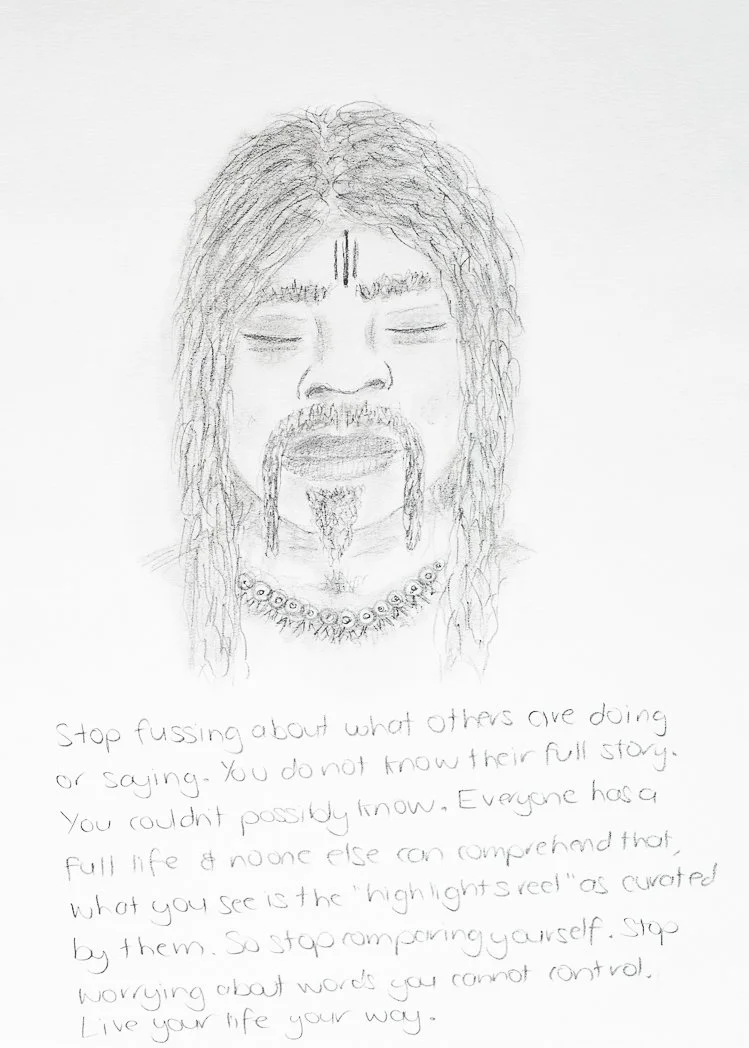 Stop fussing about what others are doing
or saying. You do not know their full story.
You couldn't possibly know. Everyone has a
full life & noone else can comprehend that,
what you see is the "highlights reel" as curated
by them. So stop comparing yourself. Stop
worrying about words you cannot control.
Live your life your way.